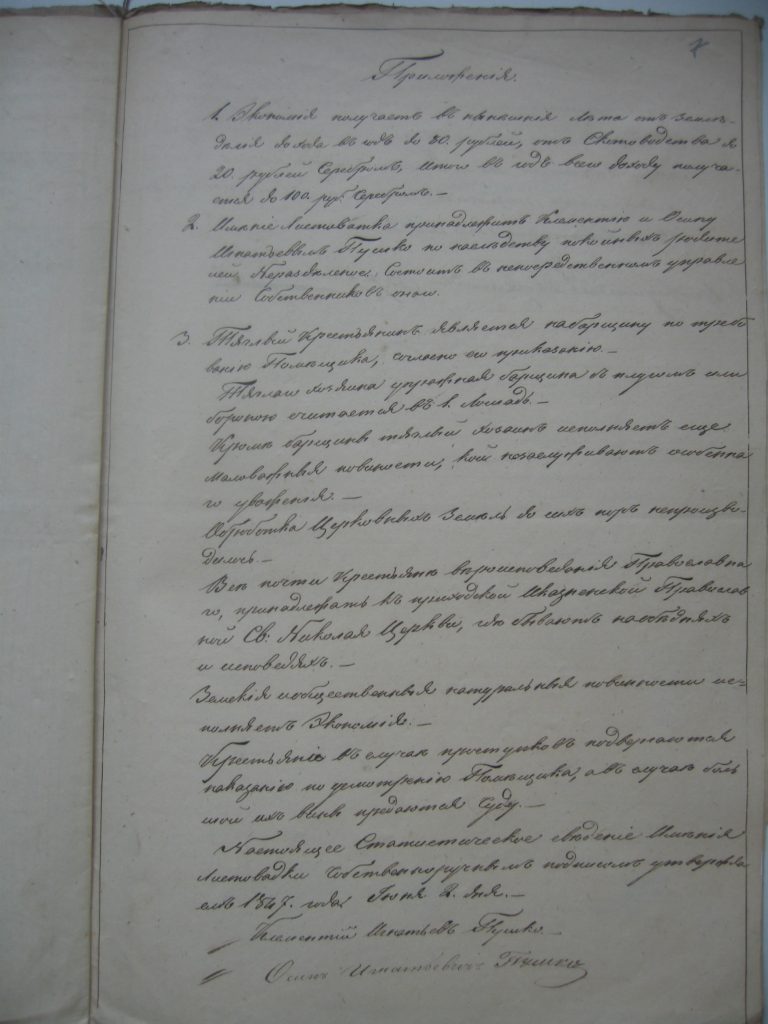 Приложенія.
1. Экономія получаетъ въ нынѣшнія лѣта отъ Земле-
дѣлія дохода въ годъ до 80. рублей, отъ Скотоводства до
20. рублей Серебромъ, Итого въ годъ всего доходу получа-
ется до 100. руб. Серебромъ. —
2. Имѣніе Листоватка принадлежитъ Клементію и Осипу
Игнатьевымъ Пушко по наслѣдству покойныхъ родите
лей, Нераздѣленое. Состоитъ въ непосредственномъ управле
ніи Собственниковъ онаго.
3. Тяглый Крестьянинъ является на барщину по требо
ванію Помѣщика, согласно его приказанію. —
Тяглаго хозяина упряжная барщина съ плугомъ или
бороною считается въ 1. Лошадь. —
Кромѣ барщины тяглый хозяинъ исполняетъ еще
маловажныя повиности, кои незаслуживаютъ особенна
го уваженія. —
Обработка Церковныхъ Земель до сихъ поръ непроизво-
дилось. —
Всѣ почти Крестьяне вѣроисповеданія Православна
го, принадлежатъ къ приходской Иказненской Православ
ной Св: Николая Церкви, гдѣ бываютъ на обѣдняхъ
и исповедяхъ. —
Земскія и общественныя натуральныя повинности ис-
полняетъ Экономія. —
Крестьяніе въ случаѣ проступковъ подвергаются
наказанію по усмотренію Помѣщика, а въ случаѣ боль
шой ихъ вины предаются Суду. —
Настоящее Статистическое сведеніе Имѣнія
Листовадки Собственноручнымъ подписомъ утвержда
емъ 1847. года Іюня 2. дня. —
Клементій Игнатьевъ Пушко —
Осипъ Игнатьевичъ Пушко